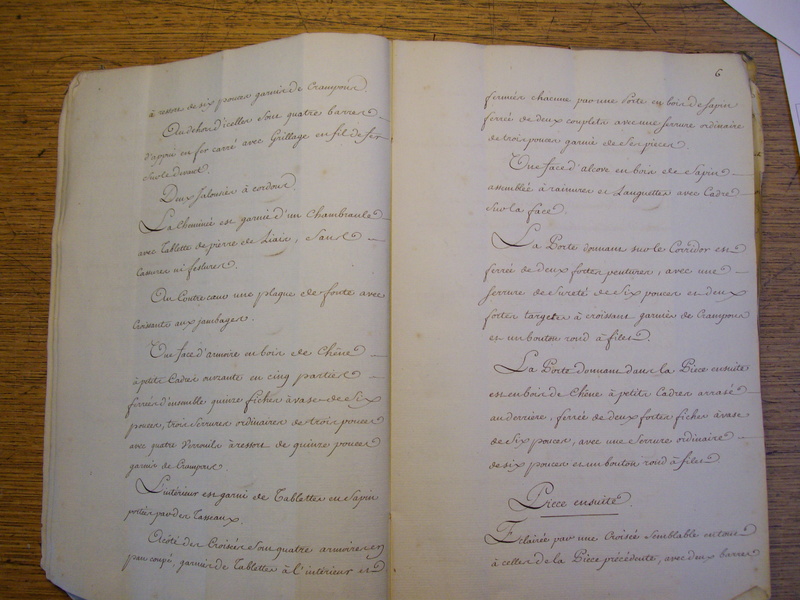 à ressort de six pouces garnis de Crampons.
Au dehors d'icelles sont quatre barres
d'appui en fer carré avec Grillage en fil de fer
sur le devant.
Deux Jalousies à cordons.
La Cheminée est garnie d'un Chambranle
avec Tablette de pierre de Liais, sans
Cassures ni felures.
Au Contre cœur une plaque de fonte avec
Croissants aux jambages.
Une face d'armoire en bois de Chêne
à petits Cadres ouvrante en cinq parties
ferrées d'ensemble quinze fiches à vase de six
pouces, trois serrures ordinaires de trois pouces
avec quatre Verrouils à ressort de quinze pouces
garnis de Crampons.
L'intérieur est garni de Tablettes en Sapin
portées par des Tasseaux.
A côté des Croisées sont quatre armoires en
pan coupé, garnies de Tablettes à l'intérieur et
6
fermées chacune par une Porte en bois de Sapin
ferrée de deux couplets avec une serrure ordinaire
de trois pouces garnie de ses pieces.
Une face d'alcove en bois de Sapin
assemblée à rainures et Languettes avec Cadre
sur la face.
La Porte donnant sur le Corridor est
ferrée de deux fortes pentures, avec une
serrure de sureté de six pouces et deux
fortes targetes à croissant garnies de Crampons
et un bouton rond à filets.
La Porte donnant dans la Piece ensuite
est en bois de Chêne à petits Cadres arrasé
au derrière, ferrée de deux fortes fiches à vase
de six pouces, avec une serrure ordinaire
de six pouces et un bouton rond à filets
Piece ensuite.
Eclairée par une Croisée semblable en tout
à celles de la Piece précédente, avec deux barres